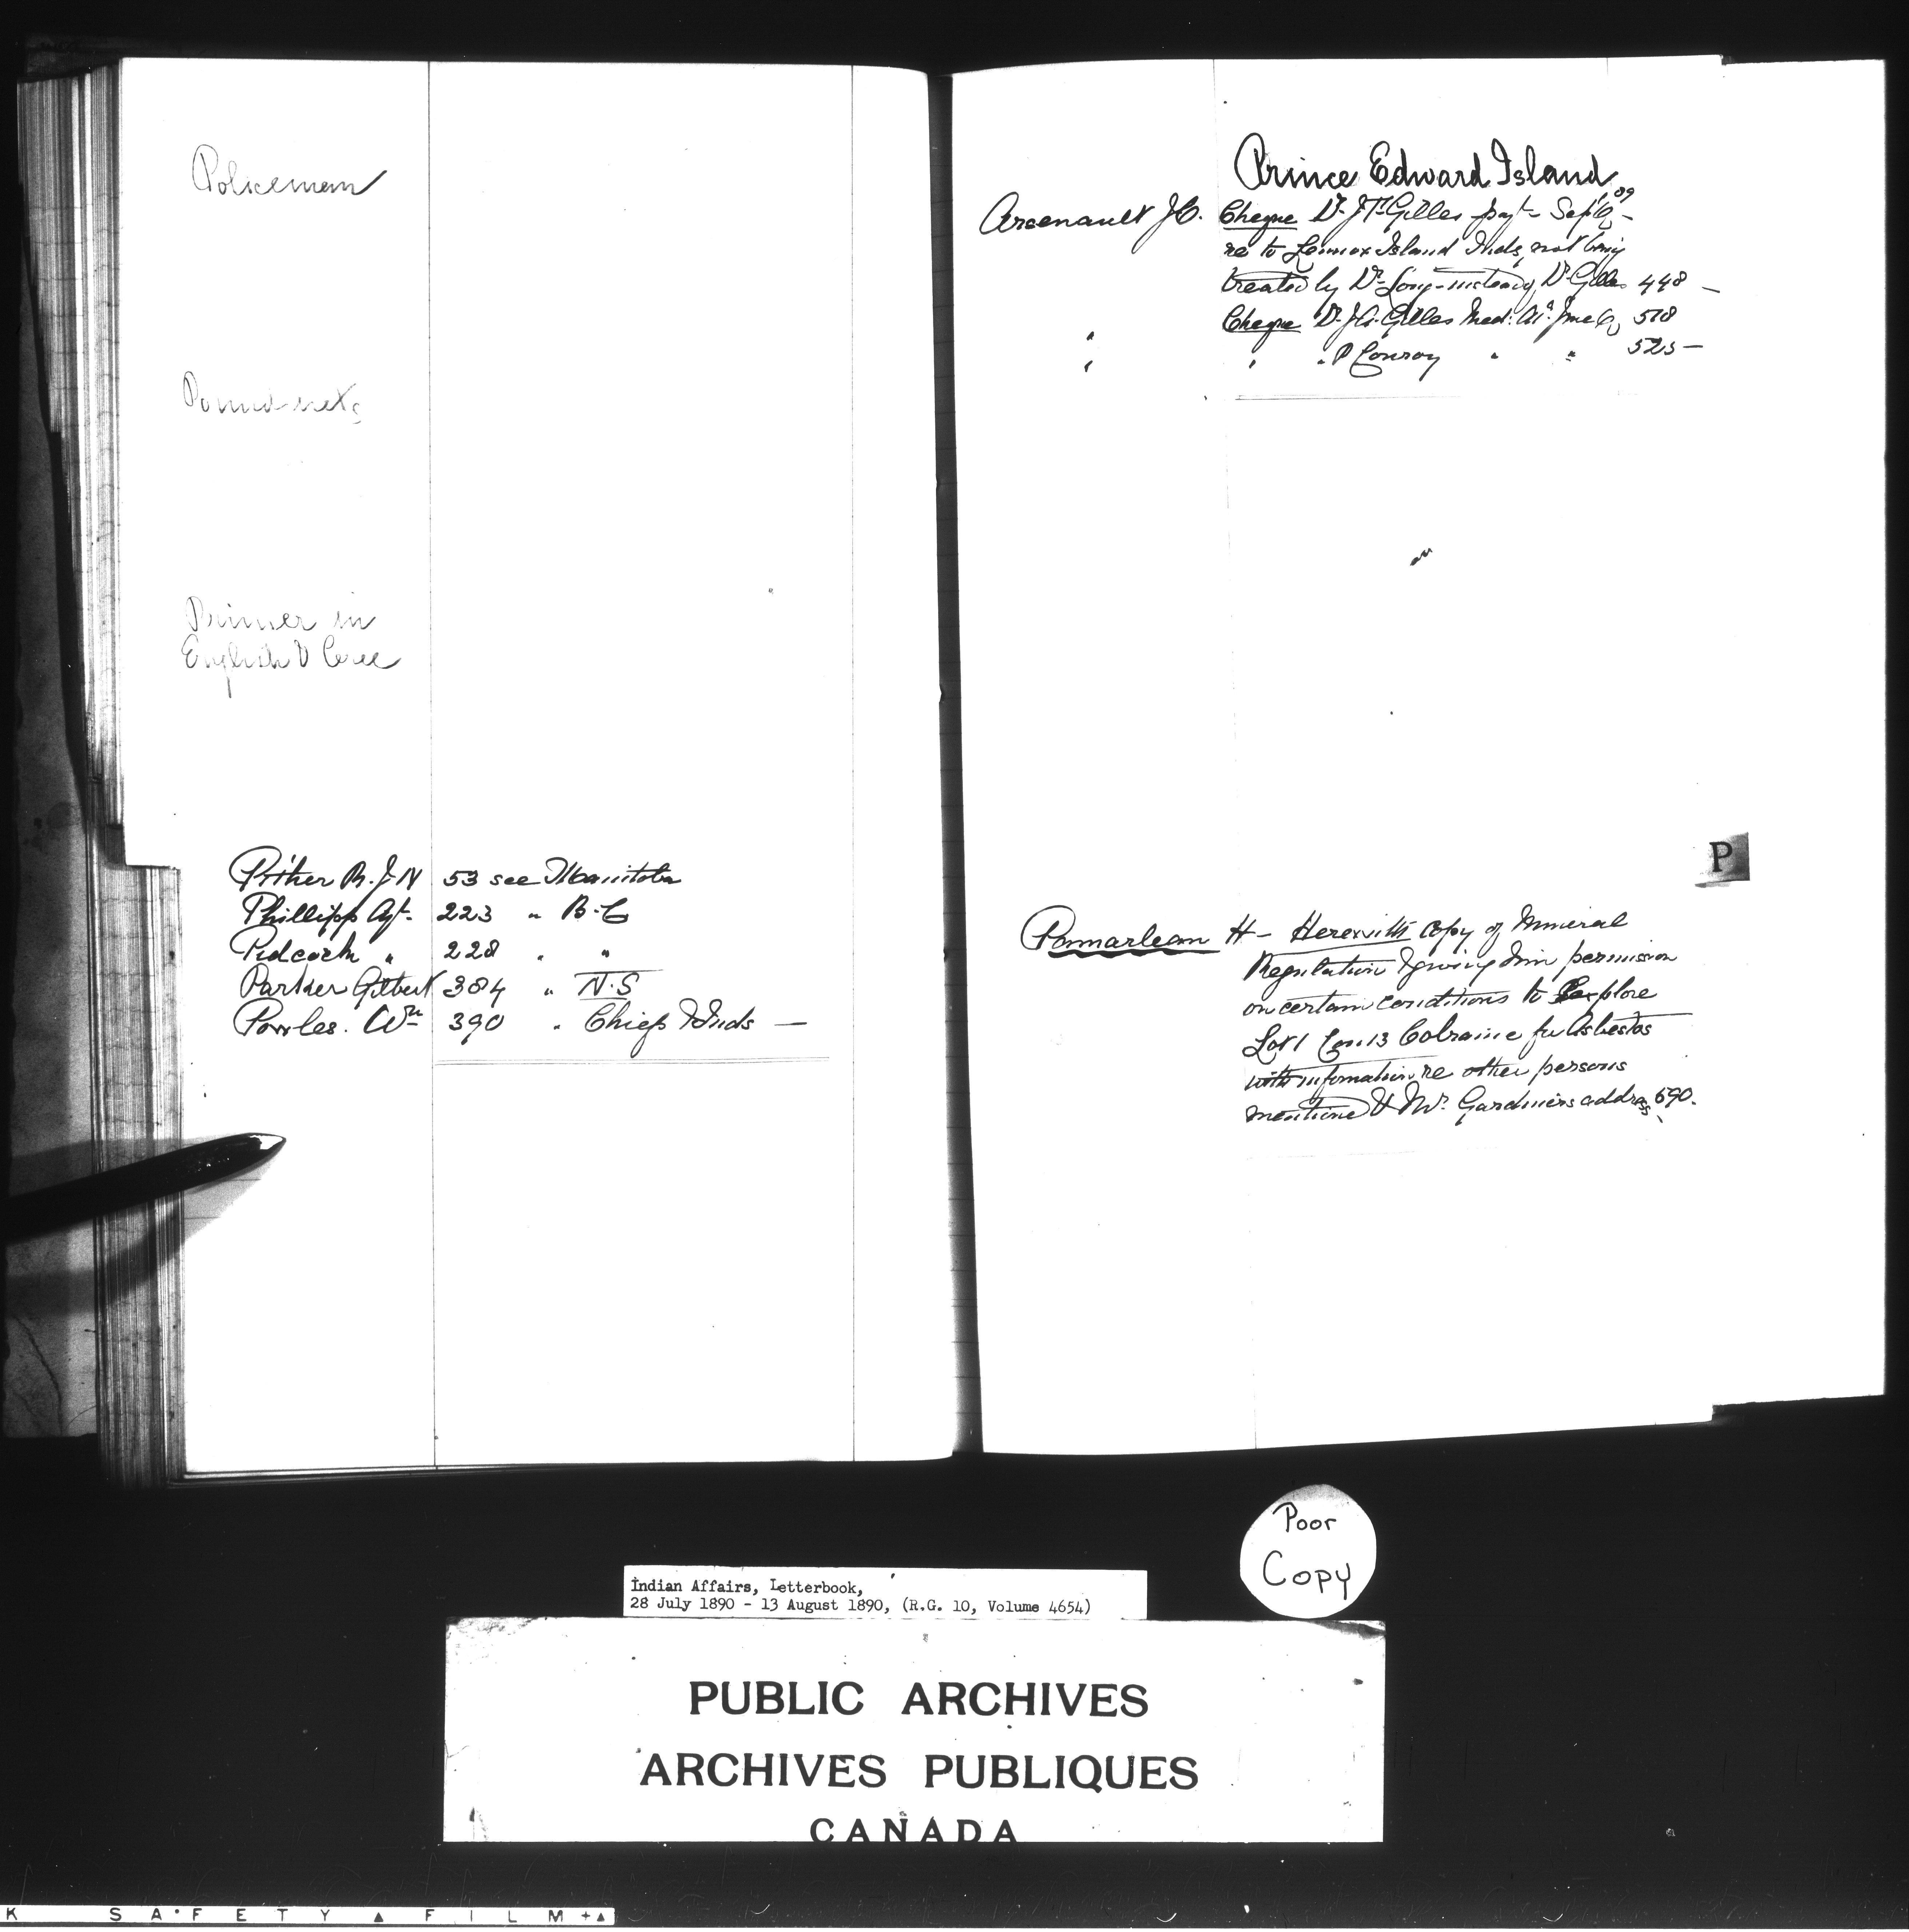 Policemen
Pound-nets
Primer in
English & Cree
Pither R. J. N 53 see Manitoba
Phillipps Agt. 223 " B.C
Pidcock " 228 " "
Parker Gilbert 384 " N.S
Powles. Wm 390 " Chiefs & Inds —
Prince Edward Island
Arsenault J.O. Cheque Dr. J.T. Gilles payt Sep Q '89 –
re to Lennox Island Inds, not being
treated by Dr Long - instead, Dr Gilles 448 –
" Cheque Dr. J.A. Gilles Med: At. June Q, 518
" " " P Conroy " " 525 –
P
Pomarleau H – Herewith copy of Mineral
Regulation & giving him permission
on certain conditions to explore
Lot 1 Con 13 Colraine for Asbestos
with information re other persons
mentioned & Mr. Gardiners address 690.
Poor
Copy
Indian Affairs, Letterbook,
28 July 1890 - 13 August 1890, (R.G. 10, Volume 4654)
PUBLIC ARCHIVES
ARCHIVES PUBLIQUES
CANADA
K SAFETY FILM